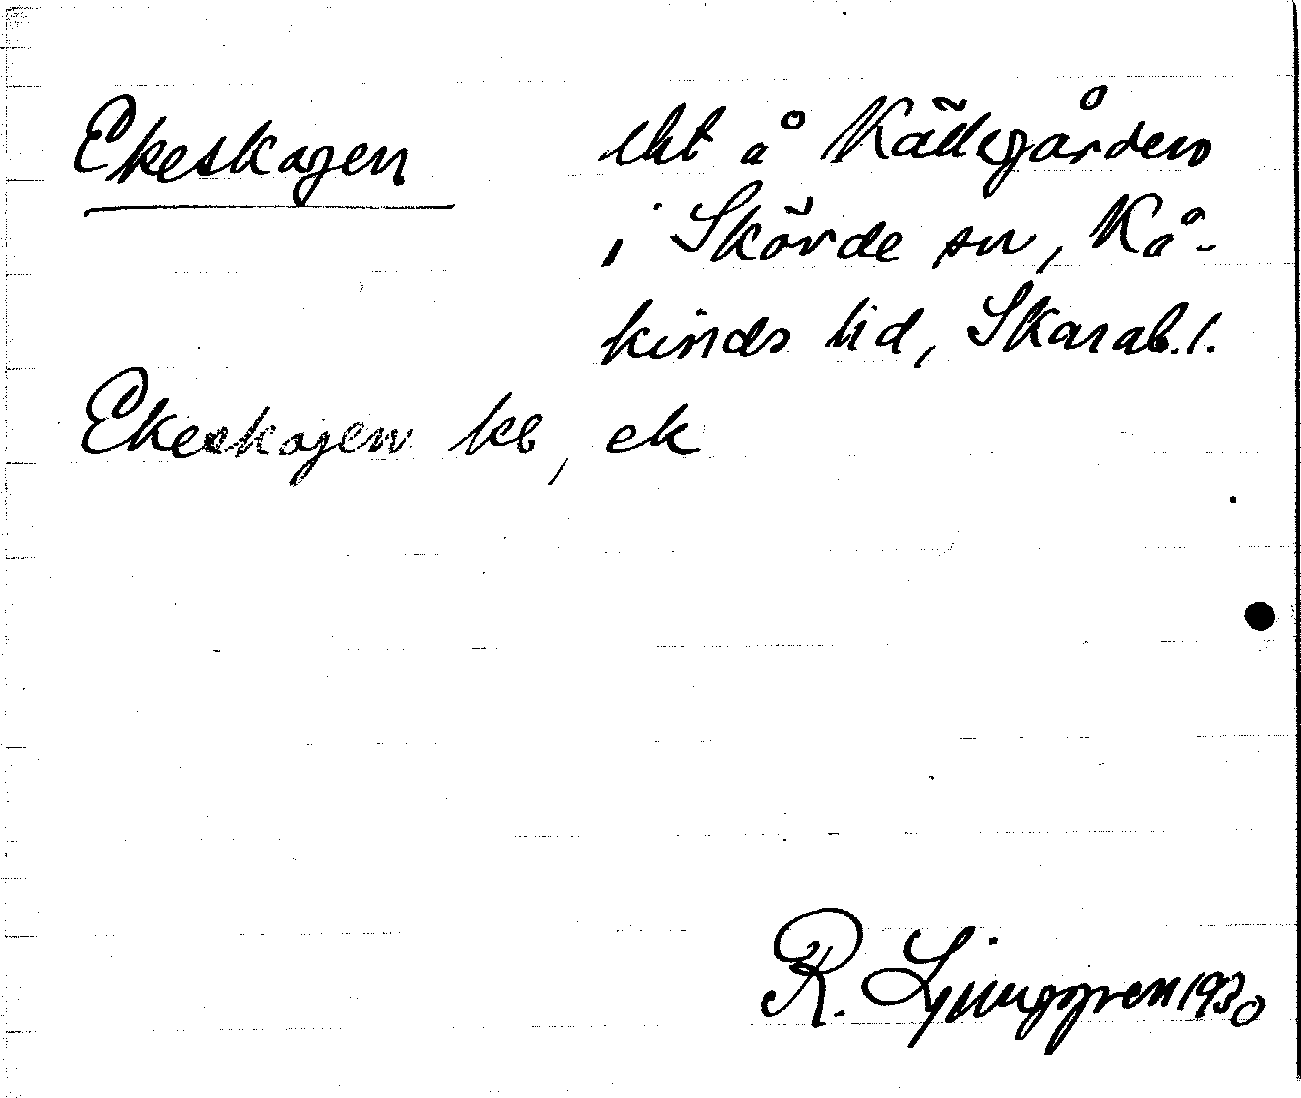 Ekeskogen lht å Källegården
i Skövde sn, Kå-
kinds hd, Skarab.l.
Ekeskogen kb, ek
R. Ljunggren 1930